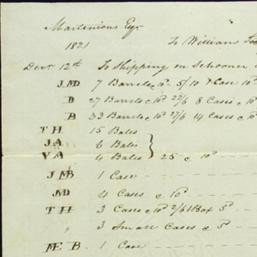 Martinious Esqr
1821 To William
Decr. 12th To Shipping on Schooner
JMD 7 Barrels c 10d. 5/10 7 Case 10d
D 27 Barrels c 10d 22/6 8 Cases c 10d
B 33 Barrels c 10d 27/6 14 Cases c 10d
TH 15 Bales
JA 6 Bales
VA 4 Bales } 25 c 10d
JMB 1 Case
JMD 4 Cases c 10d
TH 3 Cases c 10d 2/6 1 Box 5d
" 3 Small Cases c 5d
ME B 1 Case